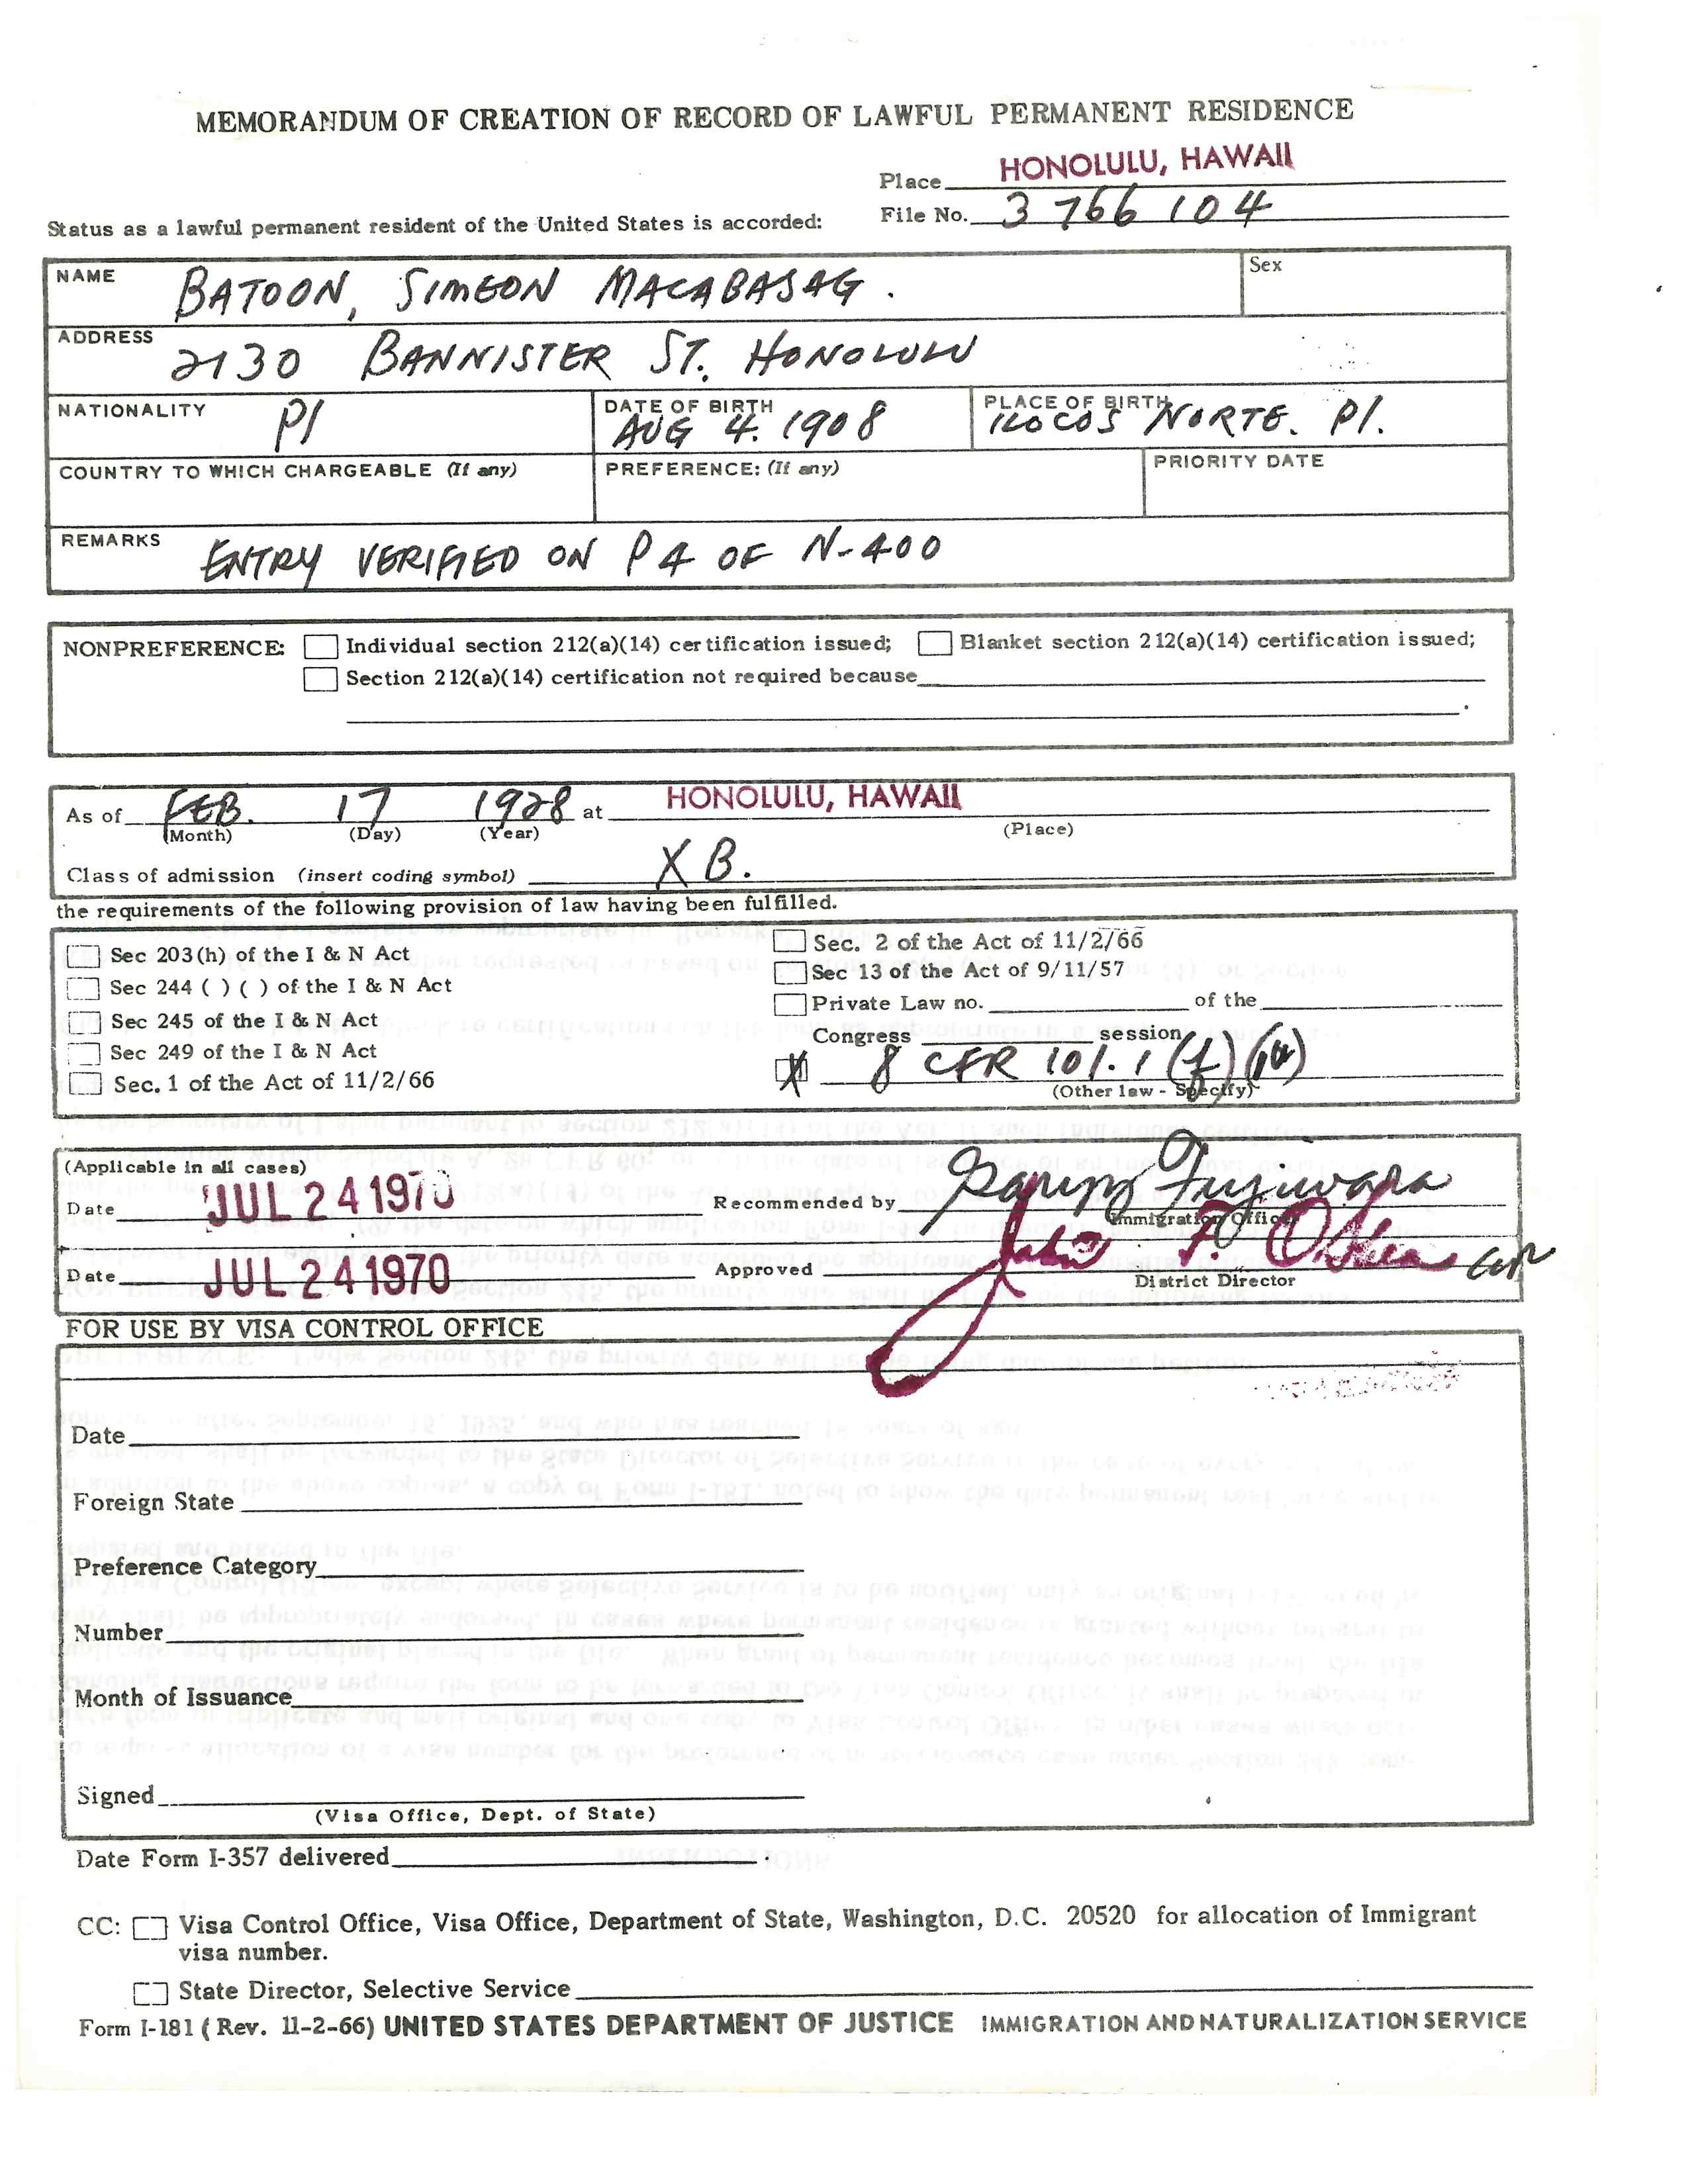 MEMORANDUM OF CREATION OF RECORD OF LAWFUL PERMANENT RESIDENCE
Place HONOLULU, HAWAII
Status as a lawful permanent resident of the United States is accorded: File No. 3 766 104
NAME BATOON, SIMEON MACABASAG. Sex
ADDRESS 2130 BANNISTER ST. HONOLULU
NATIONALITY PI DATE OF BIRTH AUG 4. 1908 PLACE OF BIRTH ILOCOS NORTE. PI.
COUNTRY TO WHICH CHARGEABLE (If any) PREFERENCE: (If any) PRIORITY DATE
REMARKS ENTRY VERIFIED ON P 4 OF N-400
NONPREFERENCE: Individual section 212(a)(14) certification issued; Blanket section 212(a)(14) certification issued;
Section 212(a)(14) certification not required because
As of FEB. 17 1928 at HONOLULU, HAWAII
(Month) (Day) (Year) (Place)
Class of admission (insert coding symbol) X B.
the requirements of the following provision of law having been fulfilled.
Sec 203(h) of the I & N Act Sec. 2 of the Act of 11/2/66
Sec 244 ( ) ( ) of the I & N Act Sec 13 of the Act of 9/11/57
Sec 245 of the I & N Act Private Law no. of the
Sec 249 of the I & N Act Congress session
Sec. 1 of the Act of 11/2/66 X 8 CFR 101.1 (f)
(Other law - Specify)
(Applicable in all cases)
Date JUL 24 1970 Recommended by Fujiwara
Immigration Officer
Date JUL 24 1970 Approved John F. O'Shea
District Director
FOR USE BY VISA CONTROL OFFICE
Date
Foreign State
Preference Category
Number
Month of Issuance
Signed
(Visa Office, Dept. of State)
Date Form I-357 delivered
CC: Visa Control Office, Visa Office, Department of State, Washington, D.C. 20520 for allocation of Immigrant
visa number.
State Director, Selective Service
Form I-181 (Rev. 11-2-66) UNITED STATES DEPARTMENT OF JUSTICE IMMIGRATION AND NATURALIZATION SERVICE